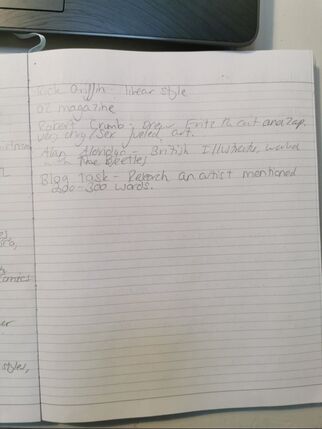 Rick Griffin - linear style
OZ magazine
Robert Crumb - Drew Fritz the cat and Zap.
was drug/sex fueled art.
Alan Aldridge - British Illustrator, worked
with The Beetles
Blog task - Reaserch an artist mentioned
200-300 words.
comics
er
styles,